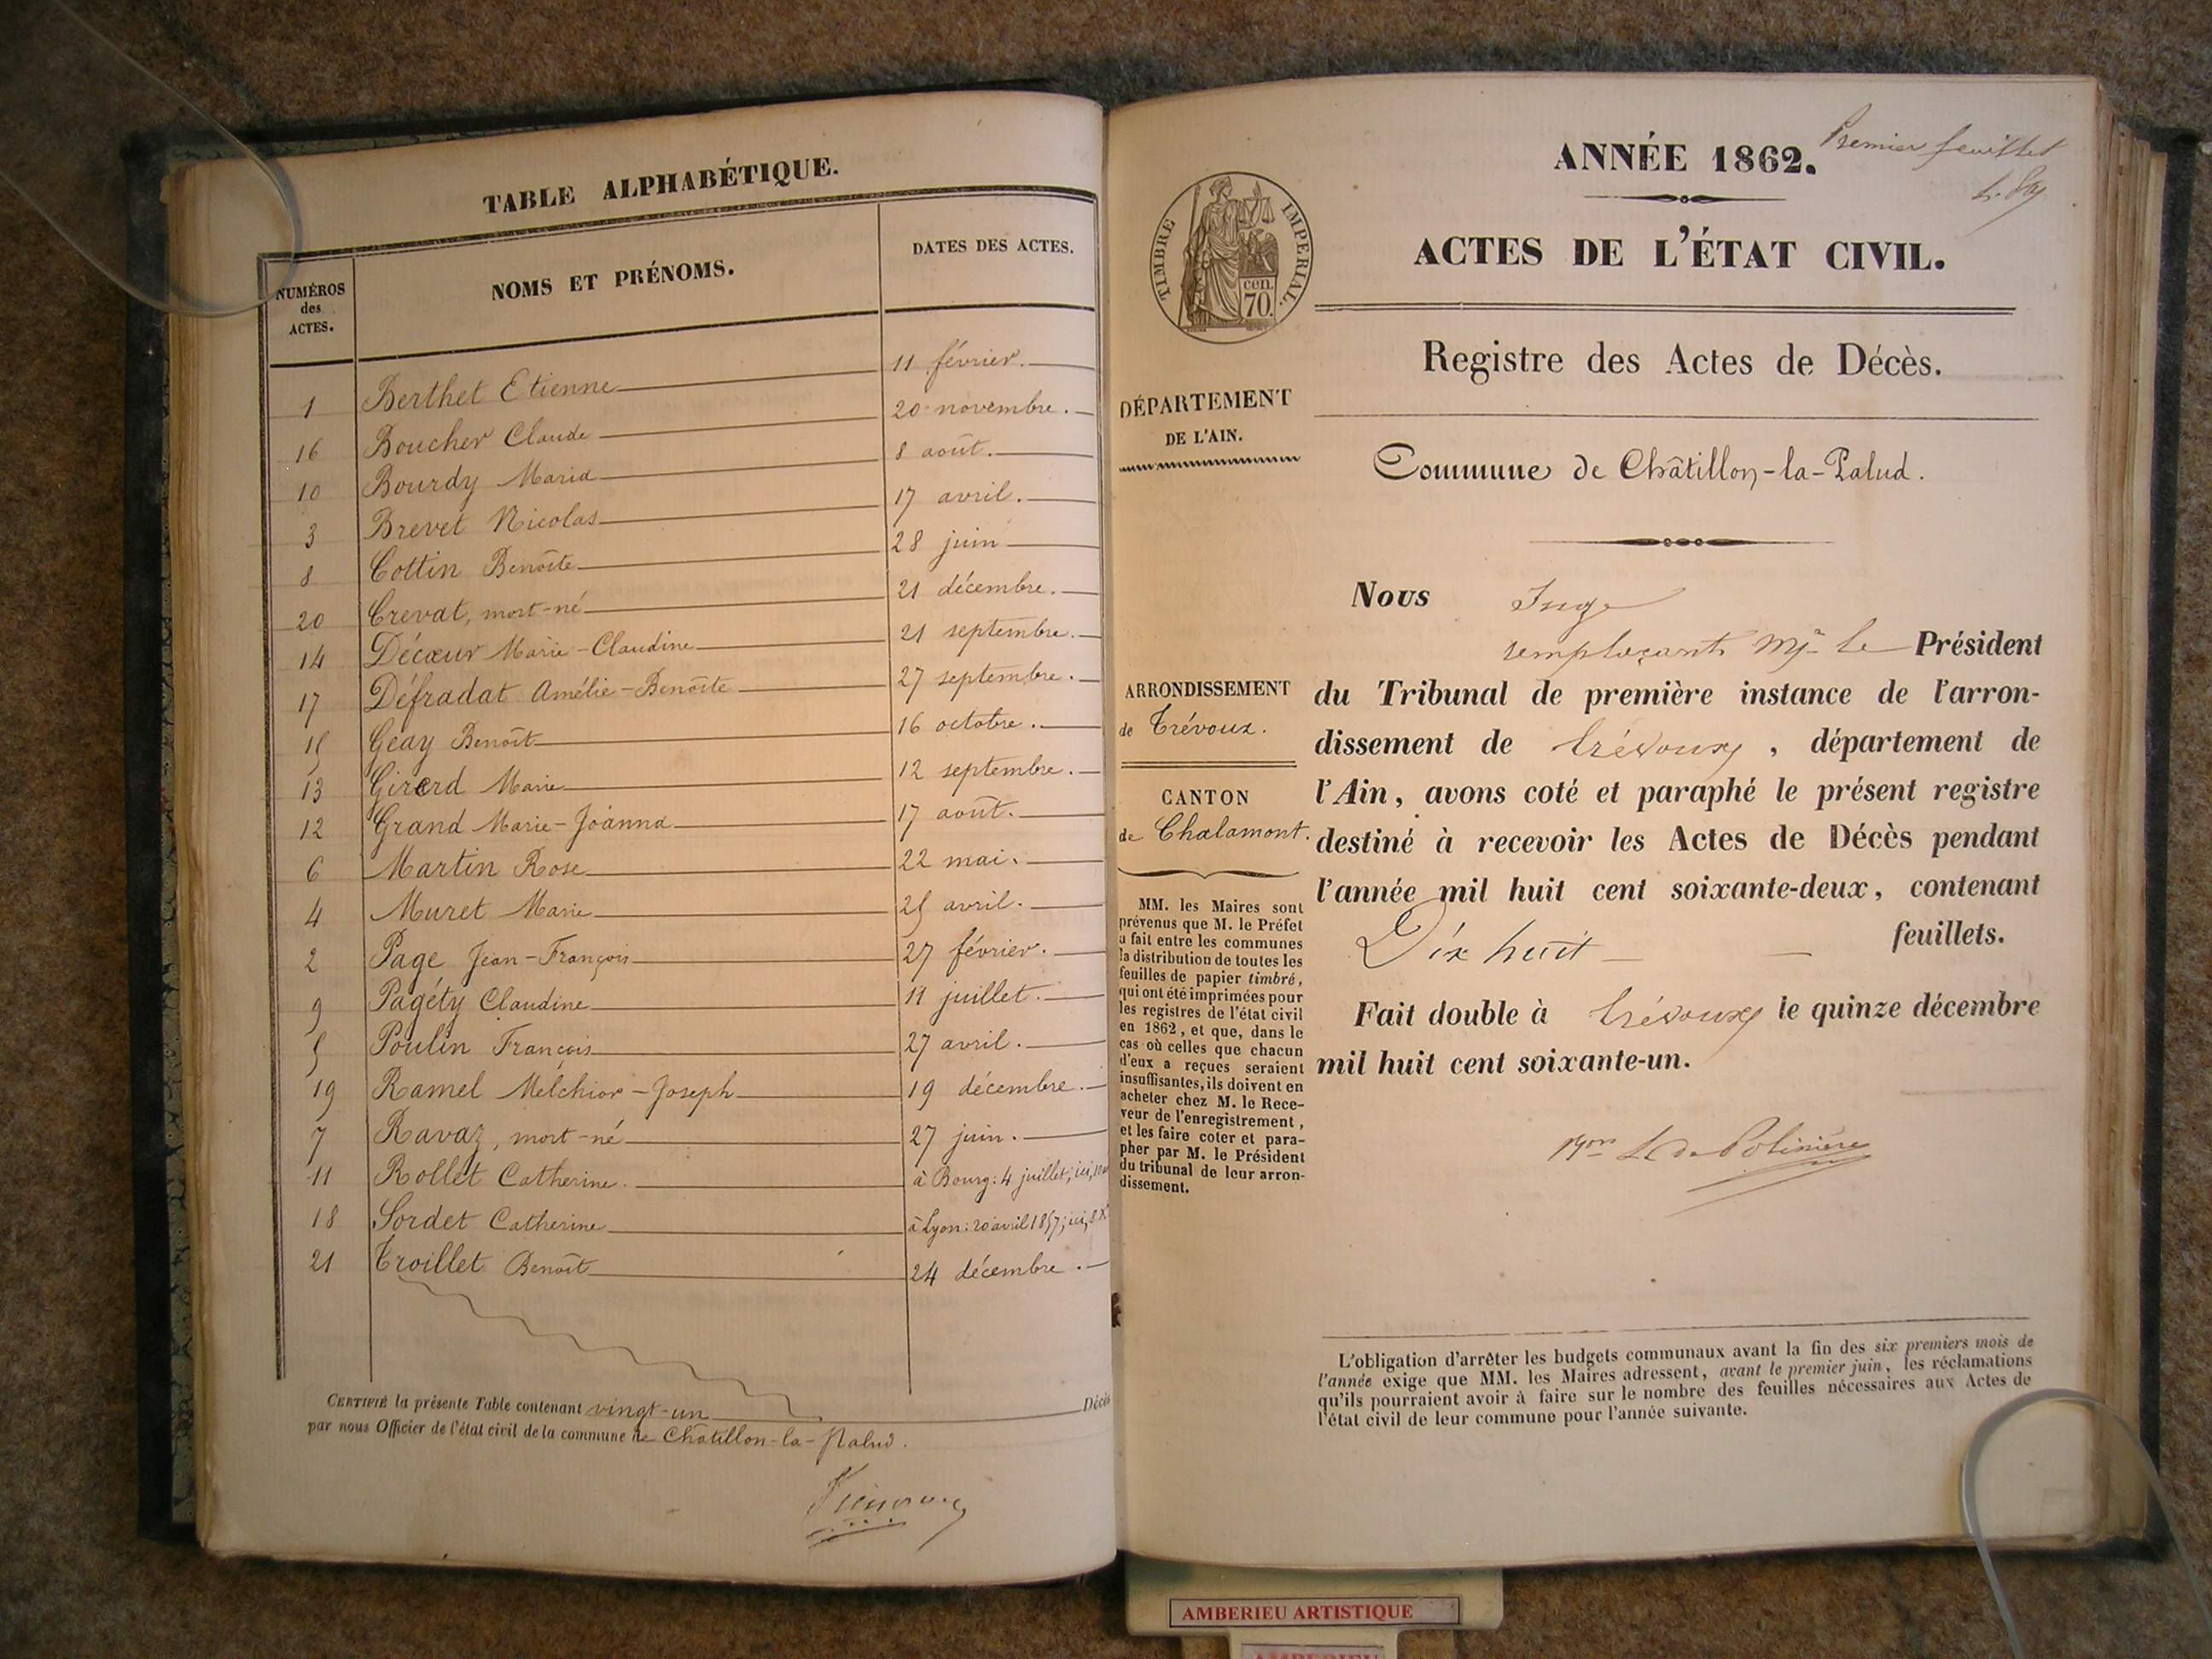 TABLE ALPHABÉTIQUE.
NUMÉROS des ACTES.
NOMS ET PRÉNOMS.
DATES DES ACTES.
1 Berthet Etienne 11 février.
16 Boucher Claude 20 novembre.
10 Bourdy Maria 8 août.
3 Brevet Nicolas 17 avril.
8 Cottin Benoîte 28 juin
20 Crevat, mort-né 21 décembre.
14 Décœur Marie-Claudine 21 septembre.
17 Défradat Amélie-Benoîte 27 septembre.
15 Geay Benoît 16 octobre.
13 Girerd Marie 12 septembre.
12 Grand Marie-Joanna 17 août.
6 Martin Rose 22 mai.
4 Muret Marie 25 avril.
2 Page Jean-François 27 février.
9 Pagéty Claudine 11 juillet.
5 Poulin François 27 avril.
19 Ramel Melchior-Joseph 19 décembre.
7 Ravaz, mort-né 27 juin.
11 Rollet Catherine. à Bourg: 4 juillet; ici,
18 Sordet Catherine à Lyon: 20 avril 1857; ici, 8
21 Troillet Benoît 24 décembre.
CERTIFIÉ la présente Table contenant vingt-un Décès
par nous Officier de l'état civil de la commune de Chatillon-la-Palud.
Premier feuillet
ANNÉE 1862.
ACTES DE L'ÉTAT CIVIL.
TIMBRE IMPERIAL.
cen. 70.
Registre des Actes de Décès.
DÉPARTEMENT
DE L'AIN.
Commune de Châtillon-la-Palud.
ARRONDISSEMENT
de Trévoux.
CANTON
de Chalamont.
MM. les Maires sont
prévenus que M. le Préfet
a fait entre les communes
la distribution de toutes les
feuilles de papier timbré,
qui ont été imprimées pour
les registres de l'état civil
en 1862, et que, dans le
cas où celles que chacun
d'eux a reçues seraient
insuffisantes, ils doivent en
acheter chez M. le Rece-
veur de l'enregistrement,
et les faire coter et para-
pher par M. le Président
du tribunal de leur arron-
dissement.
Nous Juge
remplaçant Mr le Président
du Tribunal de première instance de l'arron-
dissement de Trévoux, département de
l'Ain, avons coté et paraphé le présent registre
destiné à recevoir les Actes de Décès pendant
l'année mil huit cent soixante-deux, contenant
Dix huit feuillets.
Fait double à Trévoux le quinze décembre
mil huit cent soixante-un.
de Polinière
L'obligation d'arrêter les budgets communaux avant la fin des six premiers mois de
l'année exige que MM. les Maires adressent, avant le premier juin, les réclamations
qu'ils pourraient avoir à faire sur le nombre des feuilles nécessaires aux Actes de
l'état civil de leur commune pour l'année suivante.
AMBERIEU ARTISTIQUE
AMBERIEU